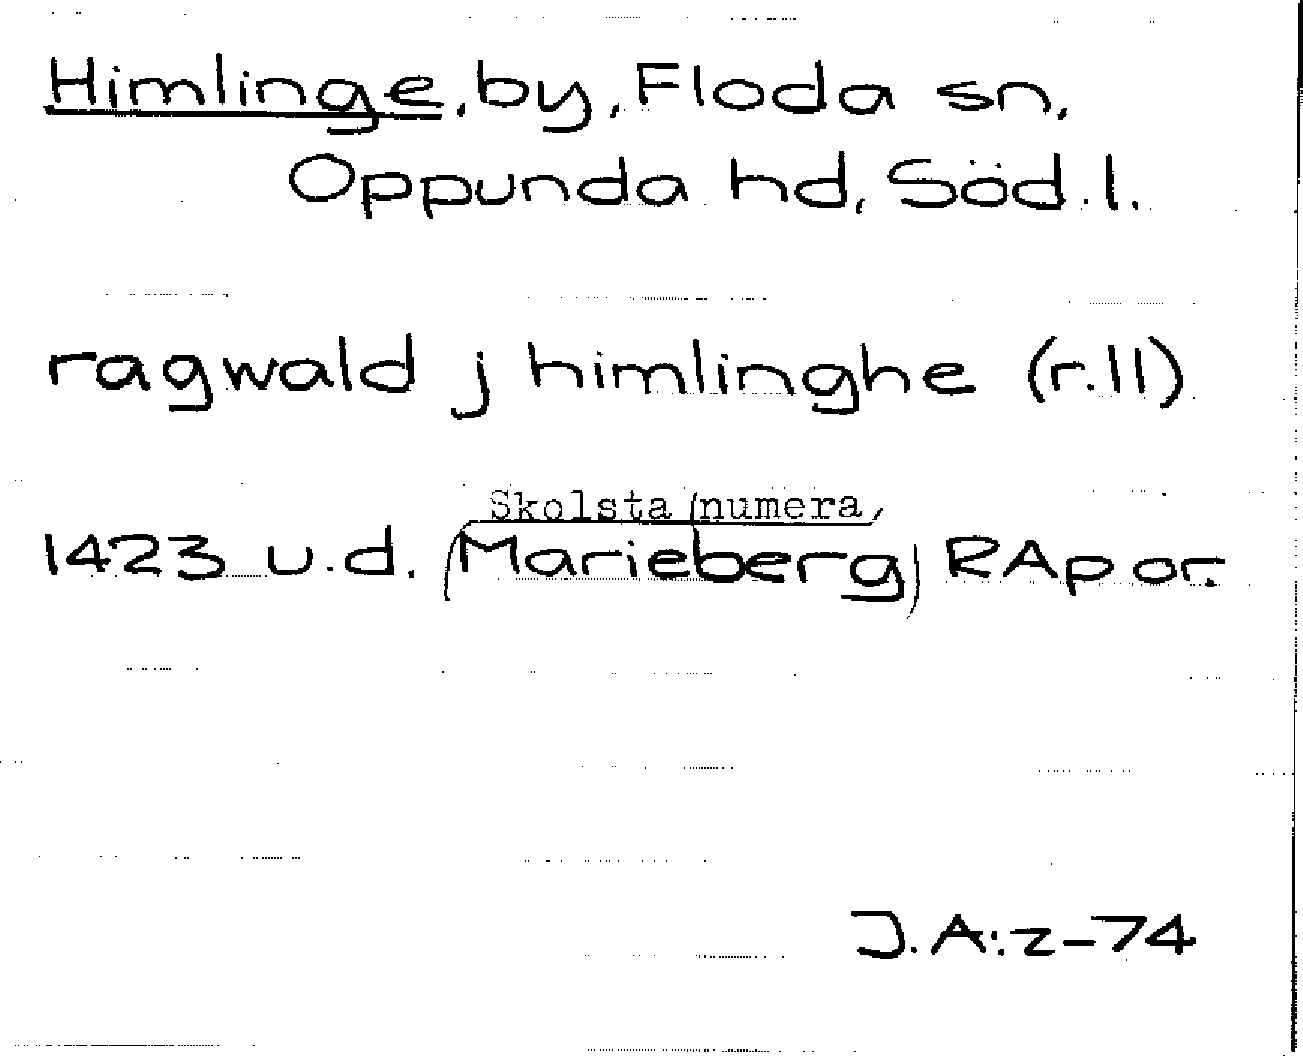 Himlinge, by, Floda sn,
Oppunda hd, Söd.l.
ragwald j himlinghe (r.11)
Skolsta (numera
1423 u.d. (Marieberg) RAp or.
J.A:z-74